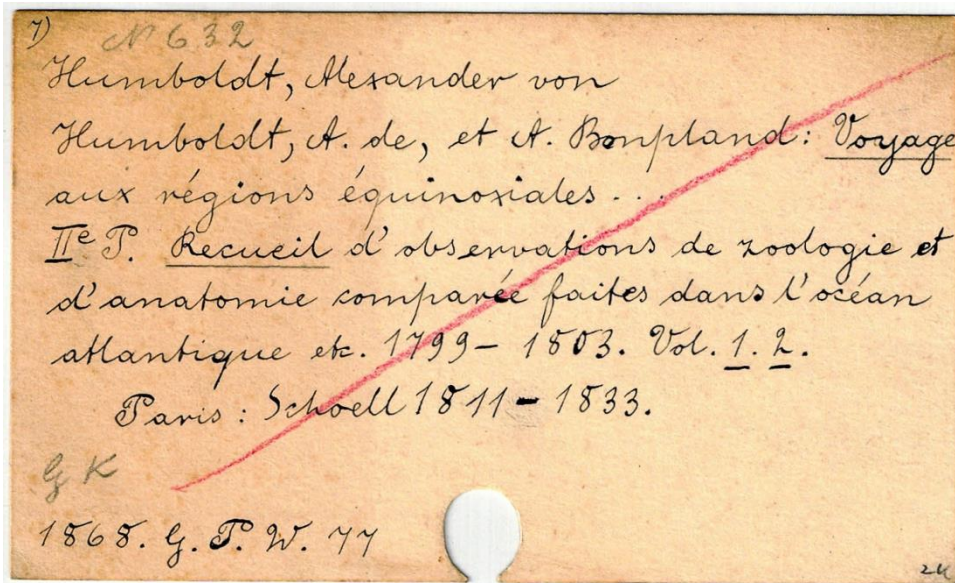 7)
N 632
Humboldt, Alexander von
Humboldt, A. de, et A. Bonpland: Voyage
aux régions équinoxiales...
IIe P. Recueil d'observations de zoologie et
d'anatomie comparée faites dans l'océan
atlantique etc. 1799-1803. Vol. 1. 2.
Paris: Schoell 1811-1833.
G K
1868. G. P. W. 77